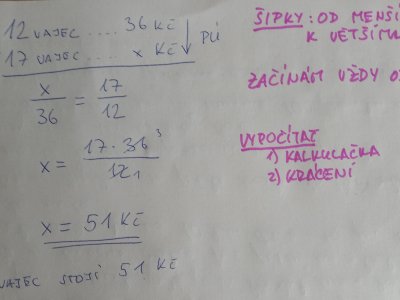 12 VAJEC .... 36 KČ
17 VAJEC .... X KČ
PÚ
x/36 = 17/12
x = 17 · 36 3 / 12 1
x = 51 KČ
VAJEC STOJÍ 51 KČ
ŠIPKY: OD MENŠÍ
K VĚTŠÍM
ZAČÍNÁM VŽDY O
VYPOČÍTAT
1) KALKULAČKA
2) KRÁCENÍ